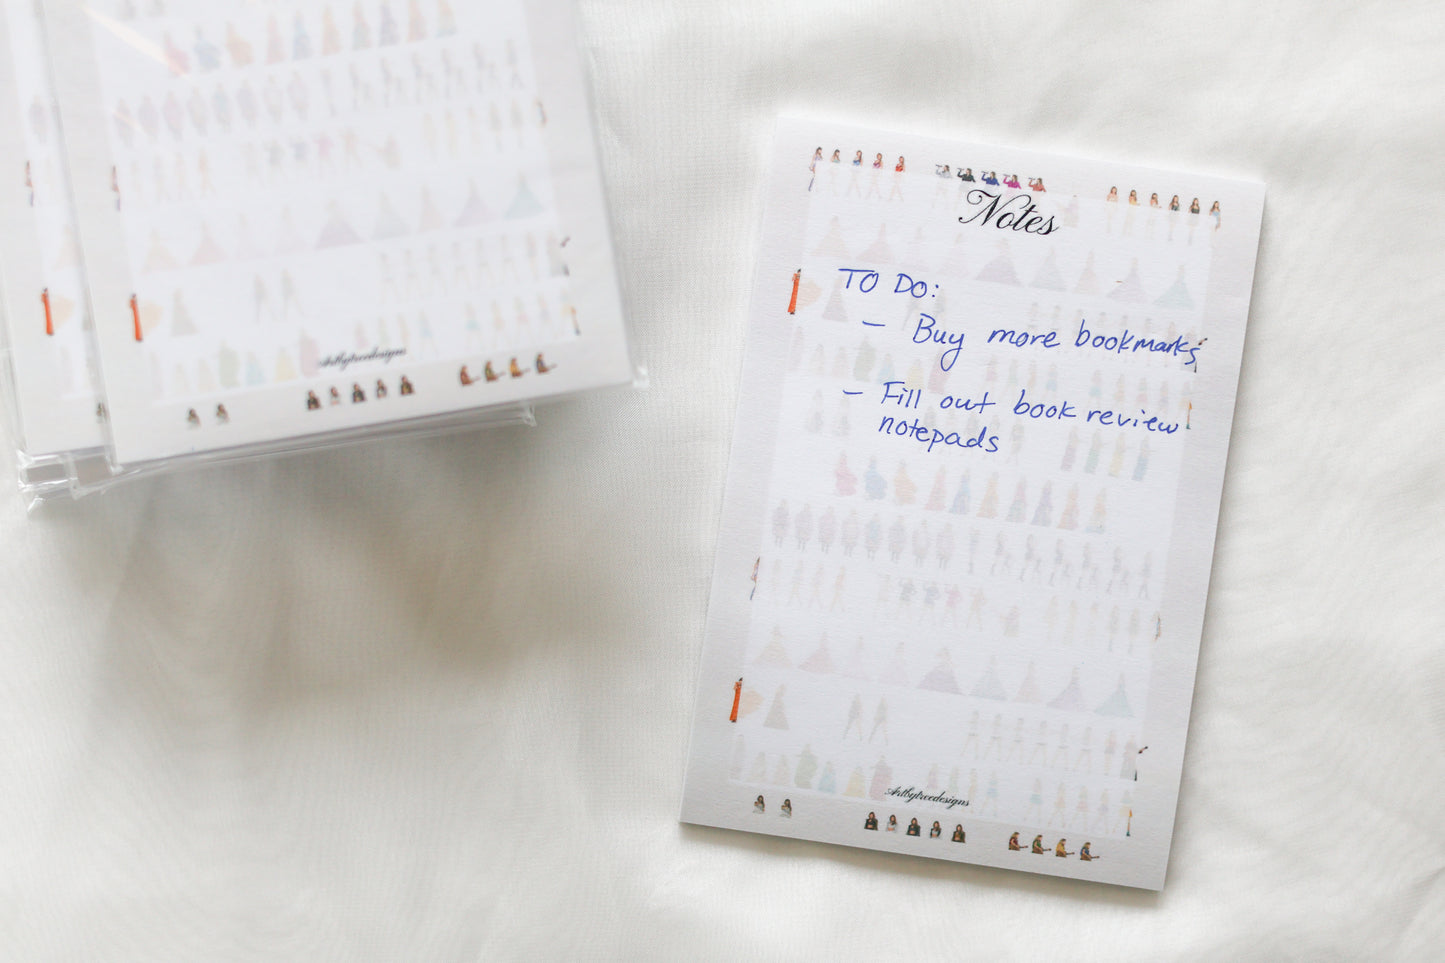 Notes
TO DO:
- Buy more bookmarks
- Fill out book review
notepads
Artbytreedesigns
Artbytreedesigns